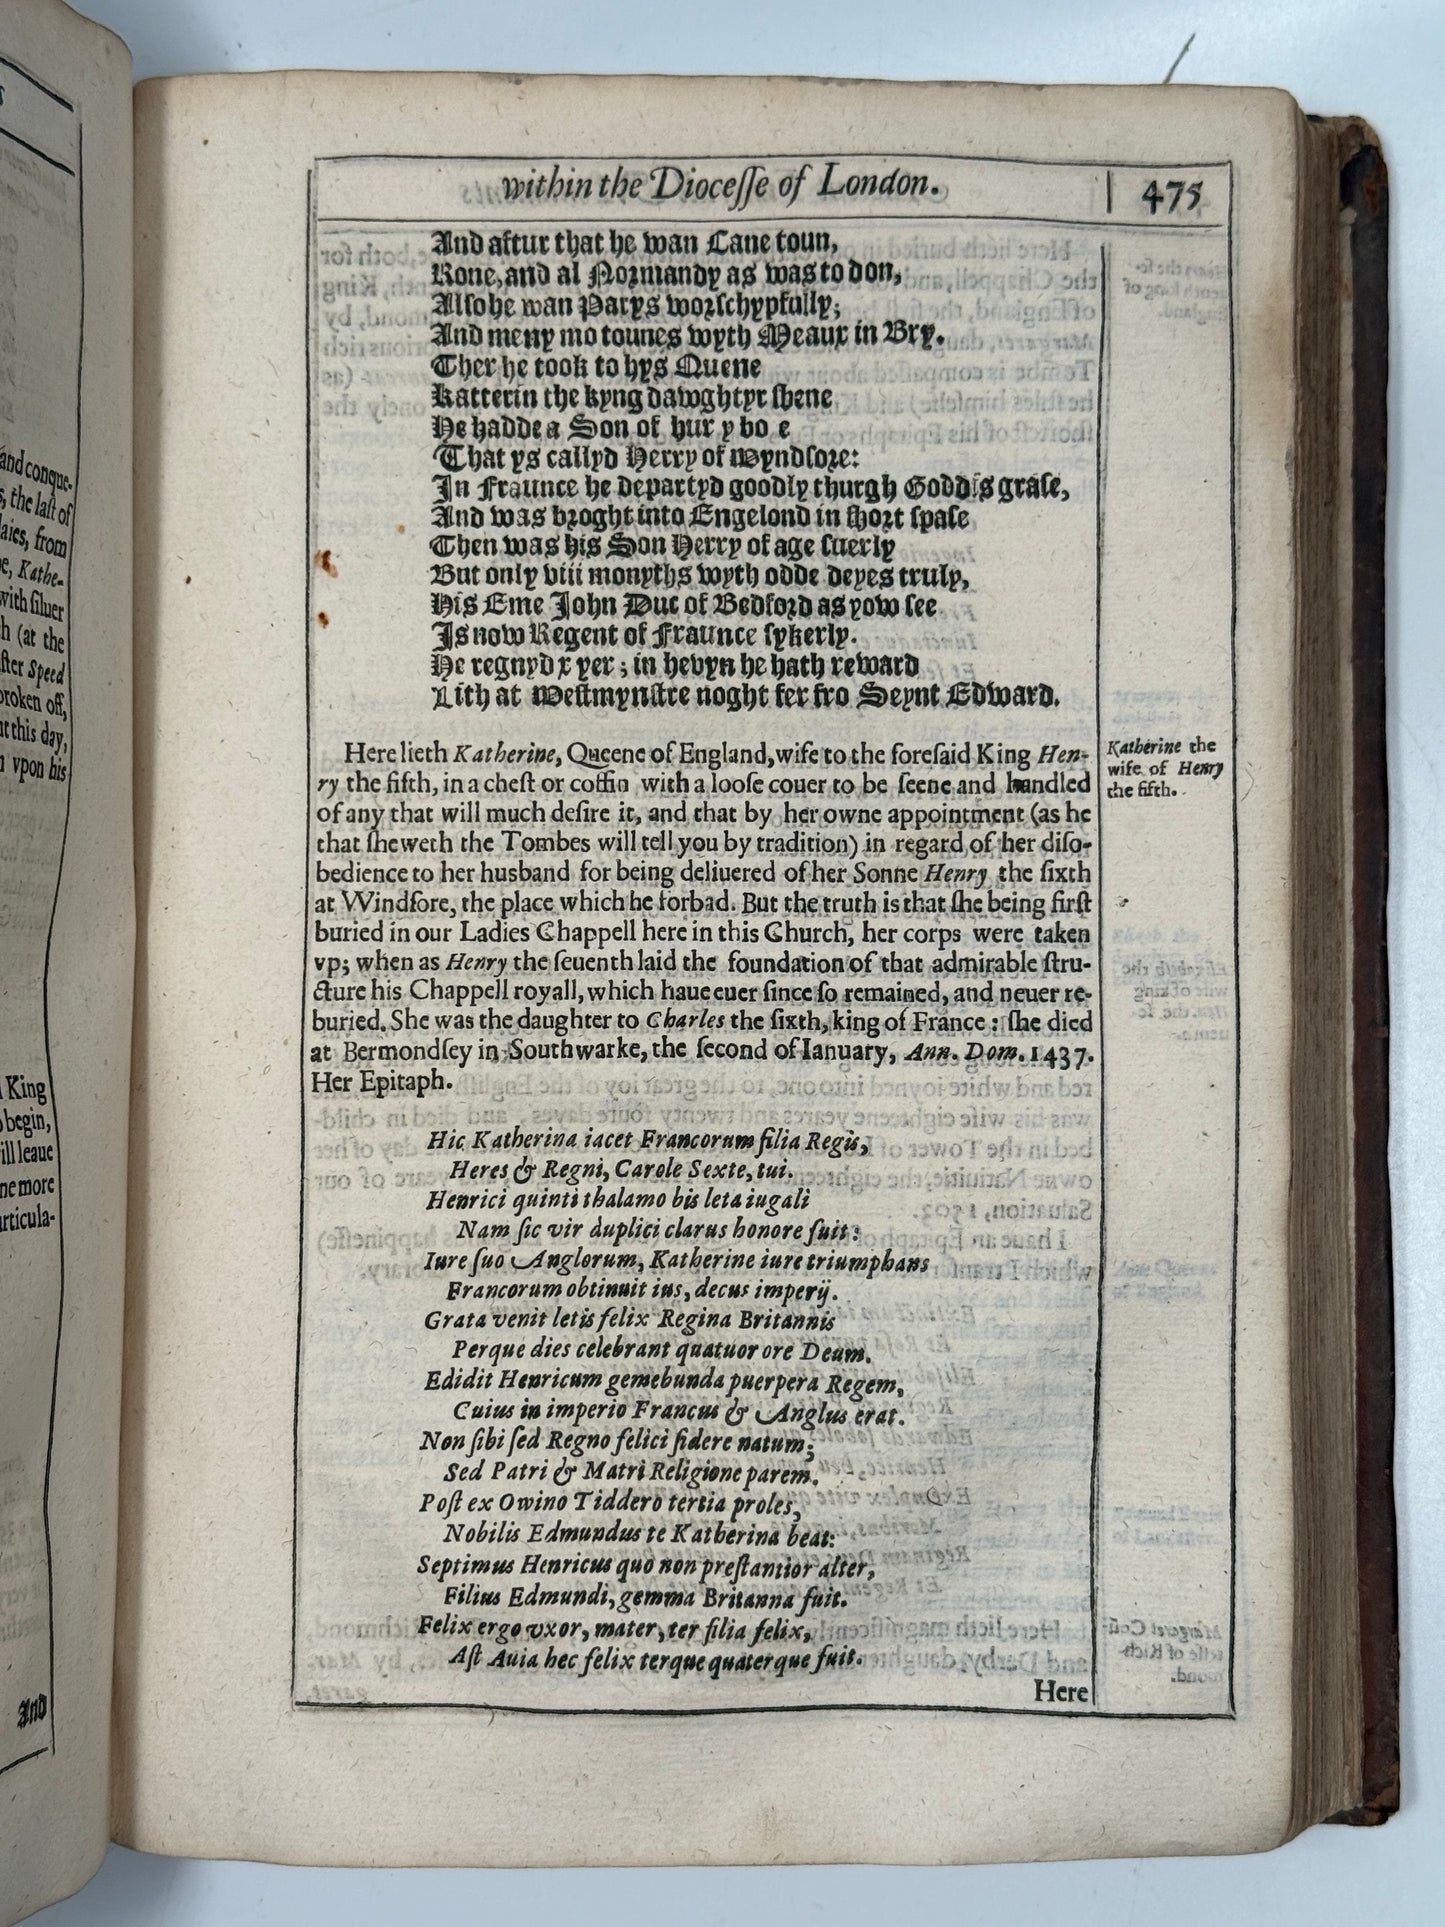 within the Dioceſſe of London.
475
And aftur that he wan Cane toun,
Rone, and al Normandy as was to don,
Alſo he wan Parys worſchypfully;
And meny mo tounes wyth Meaux in Bry.
Ther he took to hys Quene
Katterin the kyng dawghtyr ſhene
He hadde a Son of hur y bo e
That ys callyd Herry of Wyndſore:
In Fraunce he departyd goodly thurgh Goddis graſe,
And was broght into Engelond in ſhort ſpaſe
Then was his Son Herry of age ſuerly
But only viii monyths wyth odde deyes truly,
His Eme John Duc of Bedford as yow ſee
Is now Regent of Fraunce ſykerly.
He regnyd x yer; in hevyn he hath reward
Lith at Weſtmynſtre noght fer fro Seynt Edward.
Here lieth Katherine, Queene of England, wife to the foreſaid King Hen-
ry the fifth, in a cheſt or coffin with a looſe couer to be ſeene and handled
of any that will much deſire it, and that by her owne appointment (as he
that ſheweth the Tombes will tell you by tradition) in regard of her diſo-
bedience to her husband for being deliuered of her Sonne Henry the ſixth
at Windſore, the place which he forbad. But the truth is that ſhe being firſt
buried in our Ladies Chappell here in this Church, her corps were taken
vp; when as Henry the ſeuenth laid the foundation of that admirable ſtru-
cture his Chappell royall, which haue euer ſince ſo remained, and neuer re-
buried. She was the daughter to Charles the ſixth, king of France: ſhe died
at Bermondſey in Southwarke, the ſecond of Ianuary, Ann. Dom. 1437.
Her Epitaph.
Katherine the
wife of Henry
the fifth.
Hic Katherina iacet Francorum filia Regis,
Heres & Regni, Carole Sexte, tui.
Henrici quinti thalamo bis leta iugali
Nam ſic vir duplici clarus honore fuit:
Iure ſuo Anglorum, Katherine iure triumphans
Francorum obtinuit ius, decus imperij.
Grata venit letis felix Regina Britannis
Perque dies celebrant quatuor ore Deum.
Edidit Henricum gemebunda puerpera Regem,
Cuius in imperio Francus & Anglus erat.
Non ſibi ſed Regno felici ſidere natum;
Sed Patri & Matri Religione parem.
Poſt ex Owino Tiddero tertia proles,
Nobilis Edmundus te Katherina beat:
Septimus Henricus quo non preſtantior alter,
Filius Edmundi, gemma Britanna fuit.
Felix ergo vxor, mater, ter filia felix,
Aſt Auia hec felix terque quaterque fuit.
Here
and conque-
s, the laſt of
laies, from
e, Kathe-
with ſiluer
h (at the
ſter Speed
broken off,
at this day,
n vpon his
King
begin,
ill leaue
ne more
articula-
And